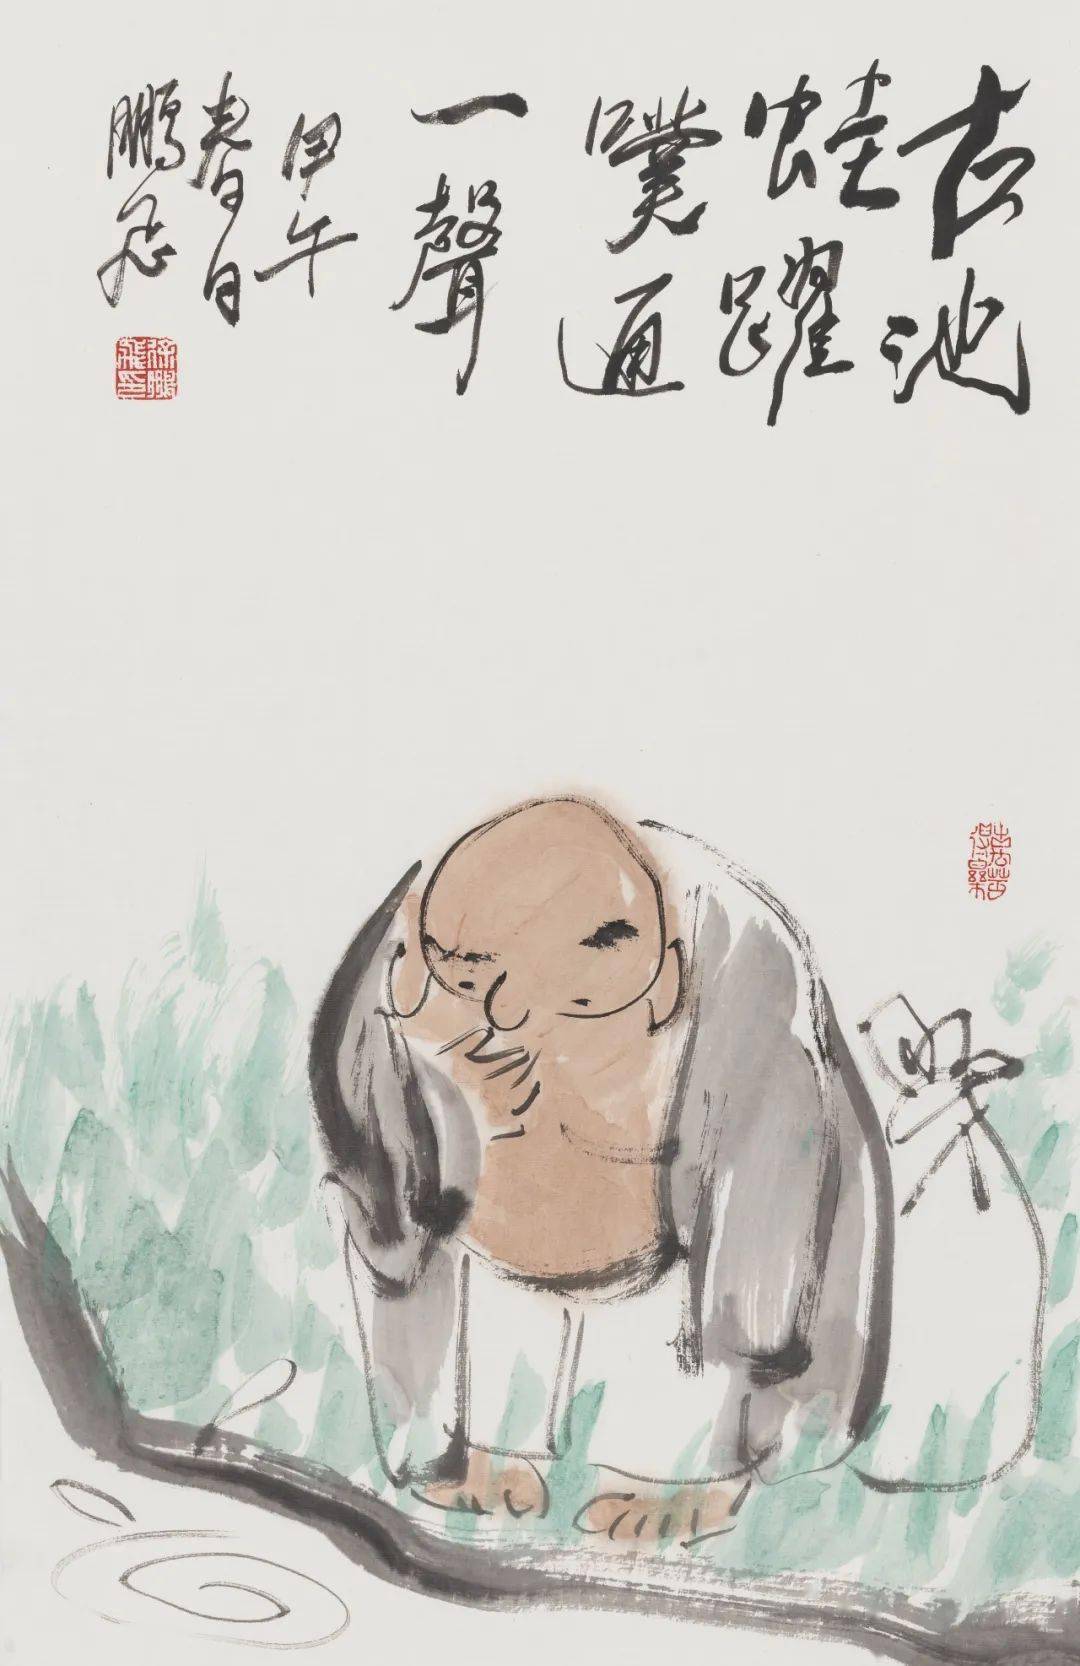 古池
蛙躍
噗通
一聲
甲午
春日
鵬飛
徐鵬
飛印